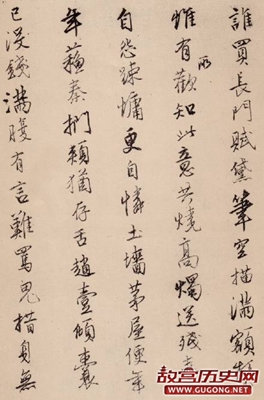 誰買長門賦黛筆空描滿額
惟有所歡知此意共燒高燭送殘春
自怨疎慵更自憐土墻茅屋便年
年蘇秦捫頰猶存舌趙壹傾囊
已沒錢滿腹有言難罵鬼措身無
故宫历史网